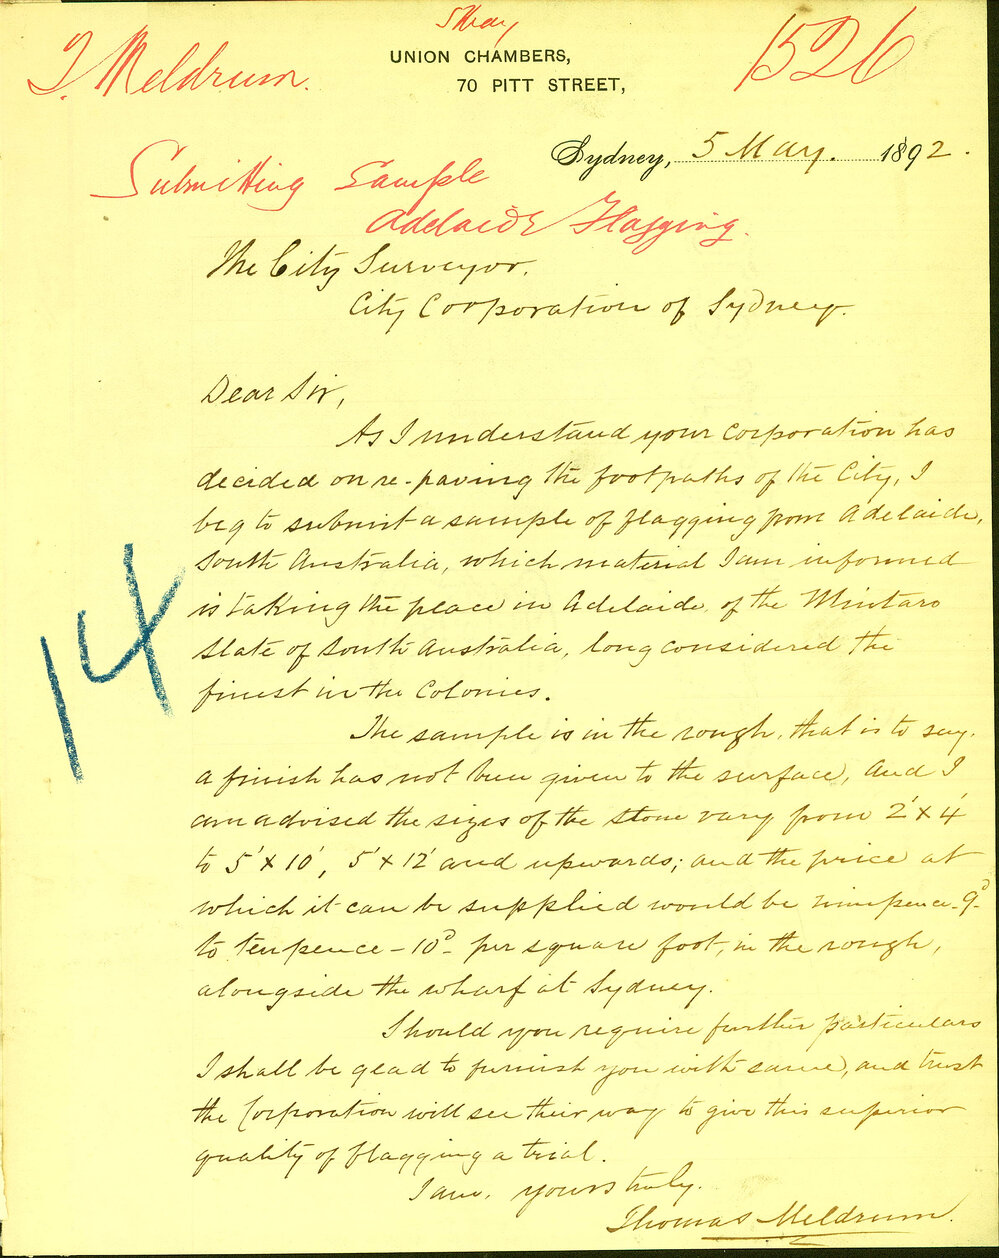 5 May
T. Meldrum.
1526
UNION CHAMBERS,
70 PITT STREET,
Sydney, 5 May. 1892.
Submitting Sample
Adelaide Flagging.
The City Surveyor.
City Corporation of Sydney.
Dear Sir,
As I understand your Corporation has
decided on re-paving the footpaths of the City, I
beg to submit a sample of flagging from Adelaide,
South Australia, which material I am informed
is taking the place in Adelaide of the Mintaro
Slate of South Australia, long considered the
finest in the Colonies.
14
The sample is in the rough, that is to say
a finish has not been given to the surface, and I
am advised the sizes of the stone vary from 2' x 4'
to 5' x 10', 5' x 12' and upwards; and the price at
which it can be supplied would be ninepence - 9d
to tenpence - 10d per square foot, in the rough,
alongside the wharf at Sydney.
Should you require further particulars
I shall be glad to furnish you with same, and trust
the Corporation will see their way to give this superior
quality of flagging a trial.
I am, yours truly.
Thomas Meldrum.